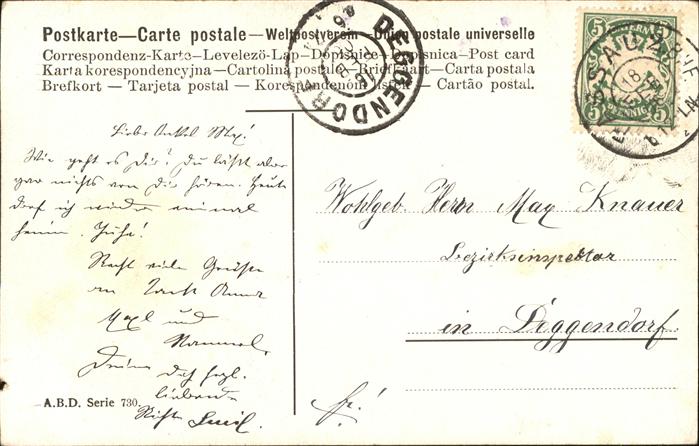 Postkarte—Carte postale—Weltpostverein—Union postale universelle
Correspondenz-Karte—Levelező-Lap—Dopisnice—Dopisnica—Post card
Karta korespondencyjna—Cartolina postale—Briefkaart—Carta postala
Brefkort — Tarjeta postal — Korespondenční lístek — Cartão postal.
DEGGENDORF
BAYERN
5 5
PFENNIG
PASSAU 2 B.Z.
18
Lieber Onkel Max!
Wie geht es Dir? Du läßt aber
gar nichts von Dir hören. Heute
darf ich wieder einmal
heim. Juhe!
Recht viele Grüße
an Tante Anna
Maxl und
Dich herzl.
liebende
Nichte
Wohlgeb. Herrn Max Knauer
Bezirksinspektor
in Deggendorf.
fr.!
A.B.D. Serie 730.